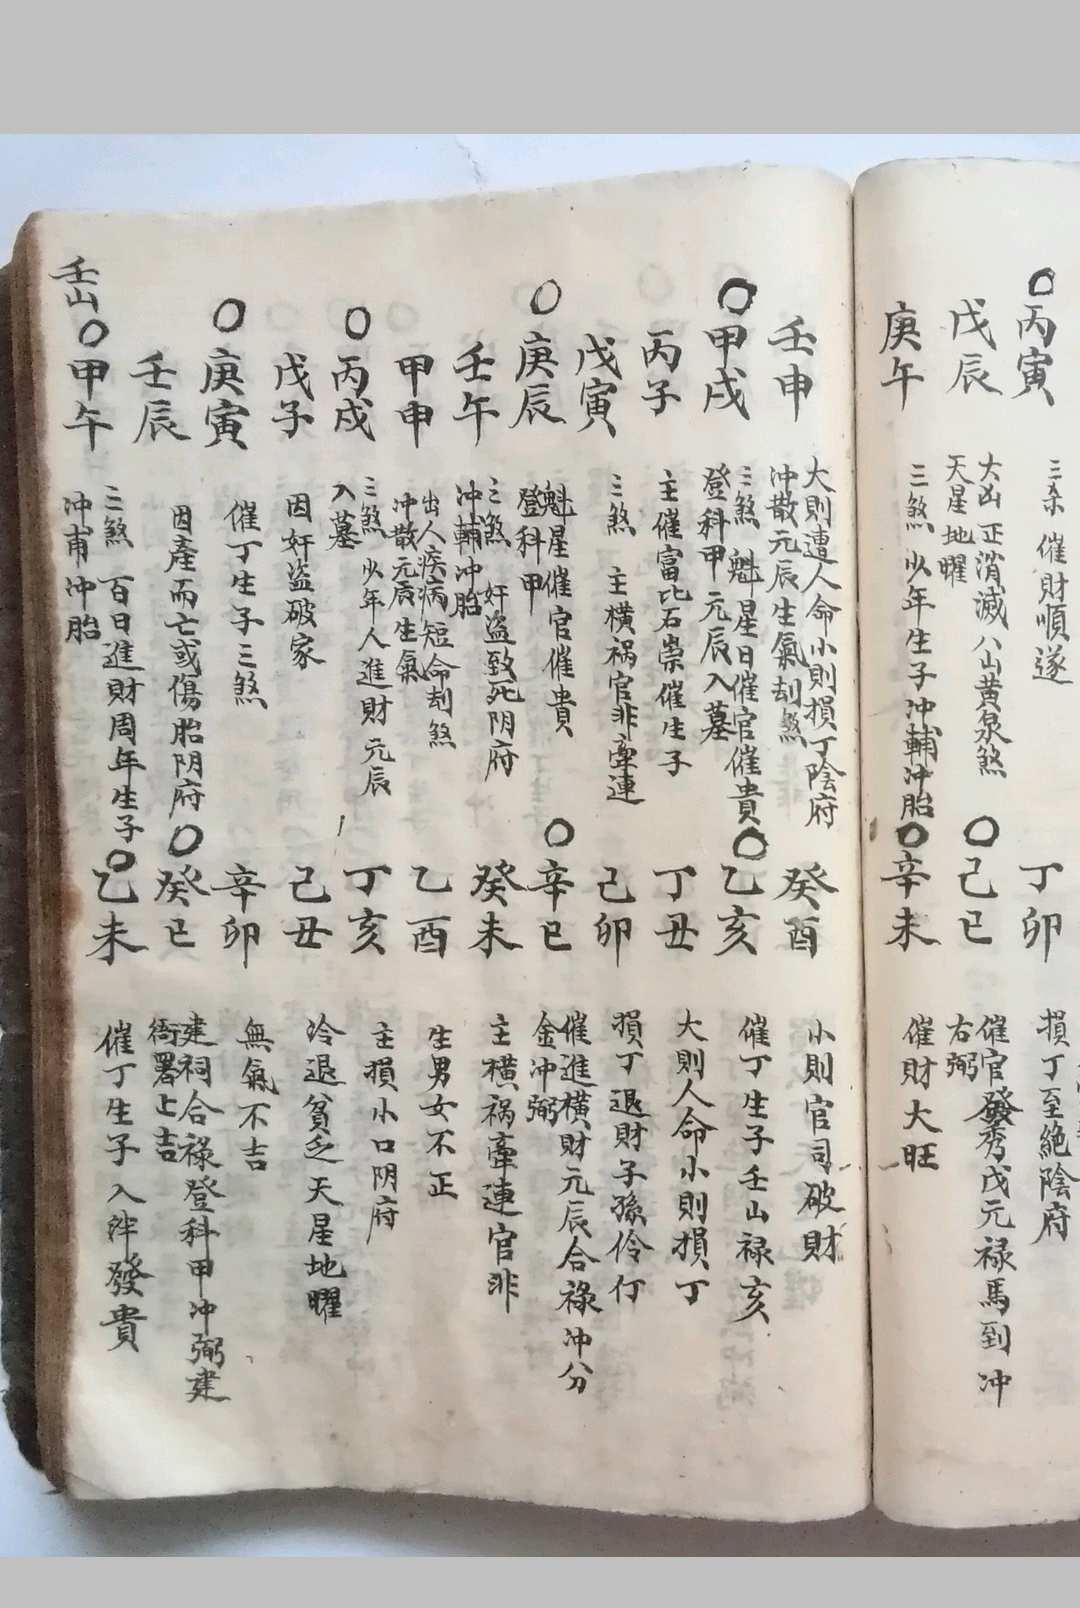 〇丙寅
三杀 催財順遂
丁卯
損丁至絕陰府
戊辰
大凶正消滅八山黄泉煞
天星地曜
〇己巳
催官發秀戊元禄馬到冲
右弼
庚午
三煞 少年生子冲輔冲胎
〇辛未
催財大旺
壬申
大則遭人命小則損丁陰府
冲散元辰生氣刦煞
癸酉
小則官司破財
〇甲戌
三煞 魁星日催官催貴
登科甲 元辰入墓
〇乙亥
催丁生子壬山禄亥
丙子
主催富比石崇催生子
丁丑
大則人命小則損丁
戊寅
三煞 主横祸官非牽連
己卯
損丁退財子孫伶仃
〇庚辰
魁星催官催貴
登科甲
〇辛巳
催進横財元辰合祿冲分
金冲弼
壬午
三煞 奸盗致死阴府
冲輔冲胎
癸未
主横祸牽連官非
甲申
出人疾病短命刦煞
冲散元辰生氣
乙酉
生男女不正
〇丙戌
三煞 少年人進財元辰
入墓
丁亥
主損小口阴府
戊子
因奸盗破家
己丑
冷退貧乏天星地曜
〇庚寅
催丁生子三煞
辛卯
無氣不吉
壬辰
因產而亡或傷胎阴府
〇癸巳
建祠合禄登科甲冲弼建
衙署上吉
壬山
〇甲午
三煞 百日進財周年生子
冲甫冲胎
〇乙未
催丁生子入泮發貴